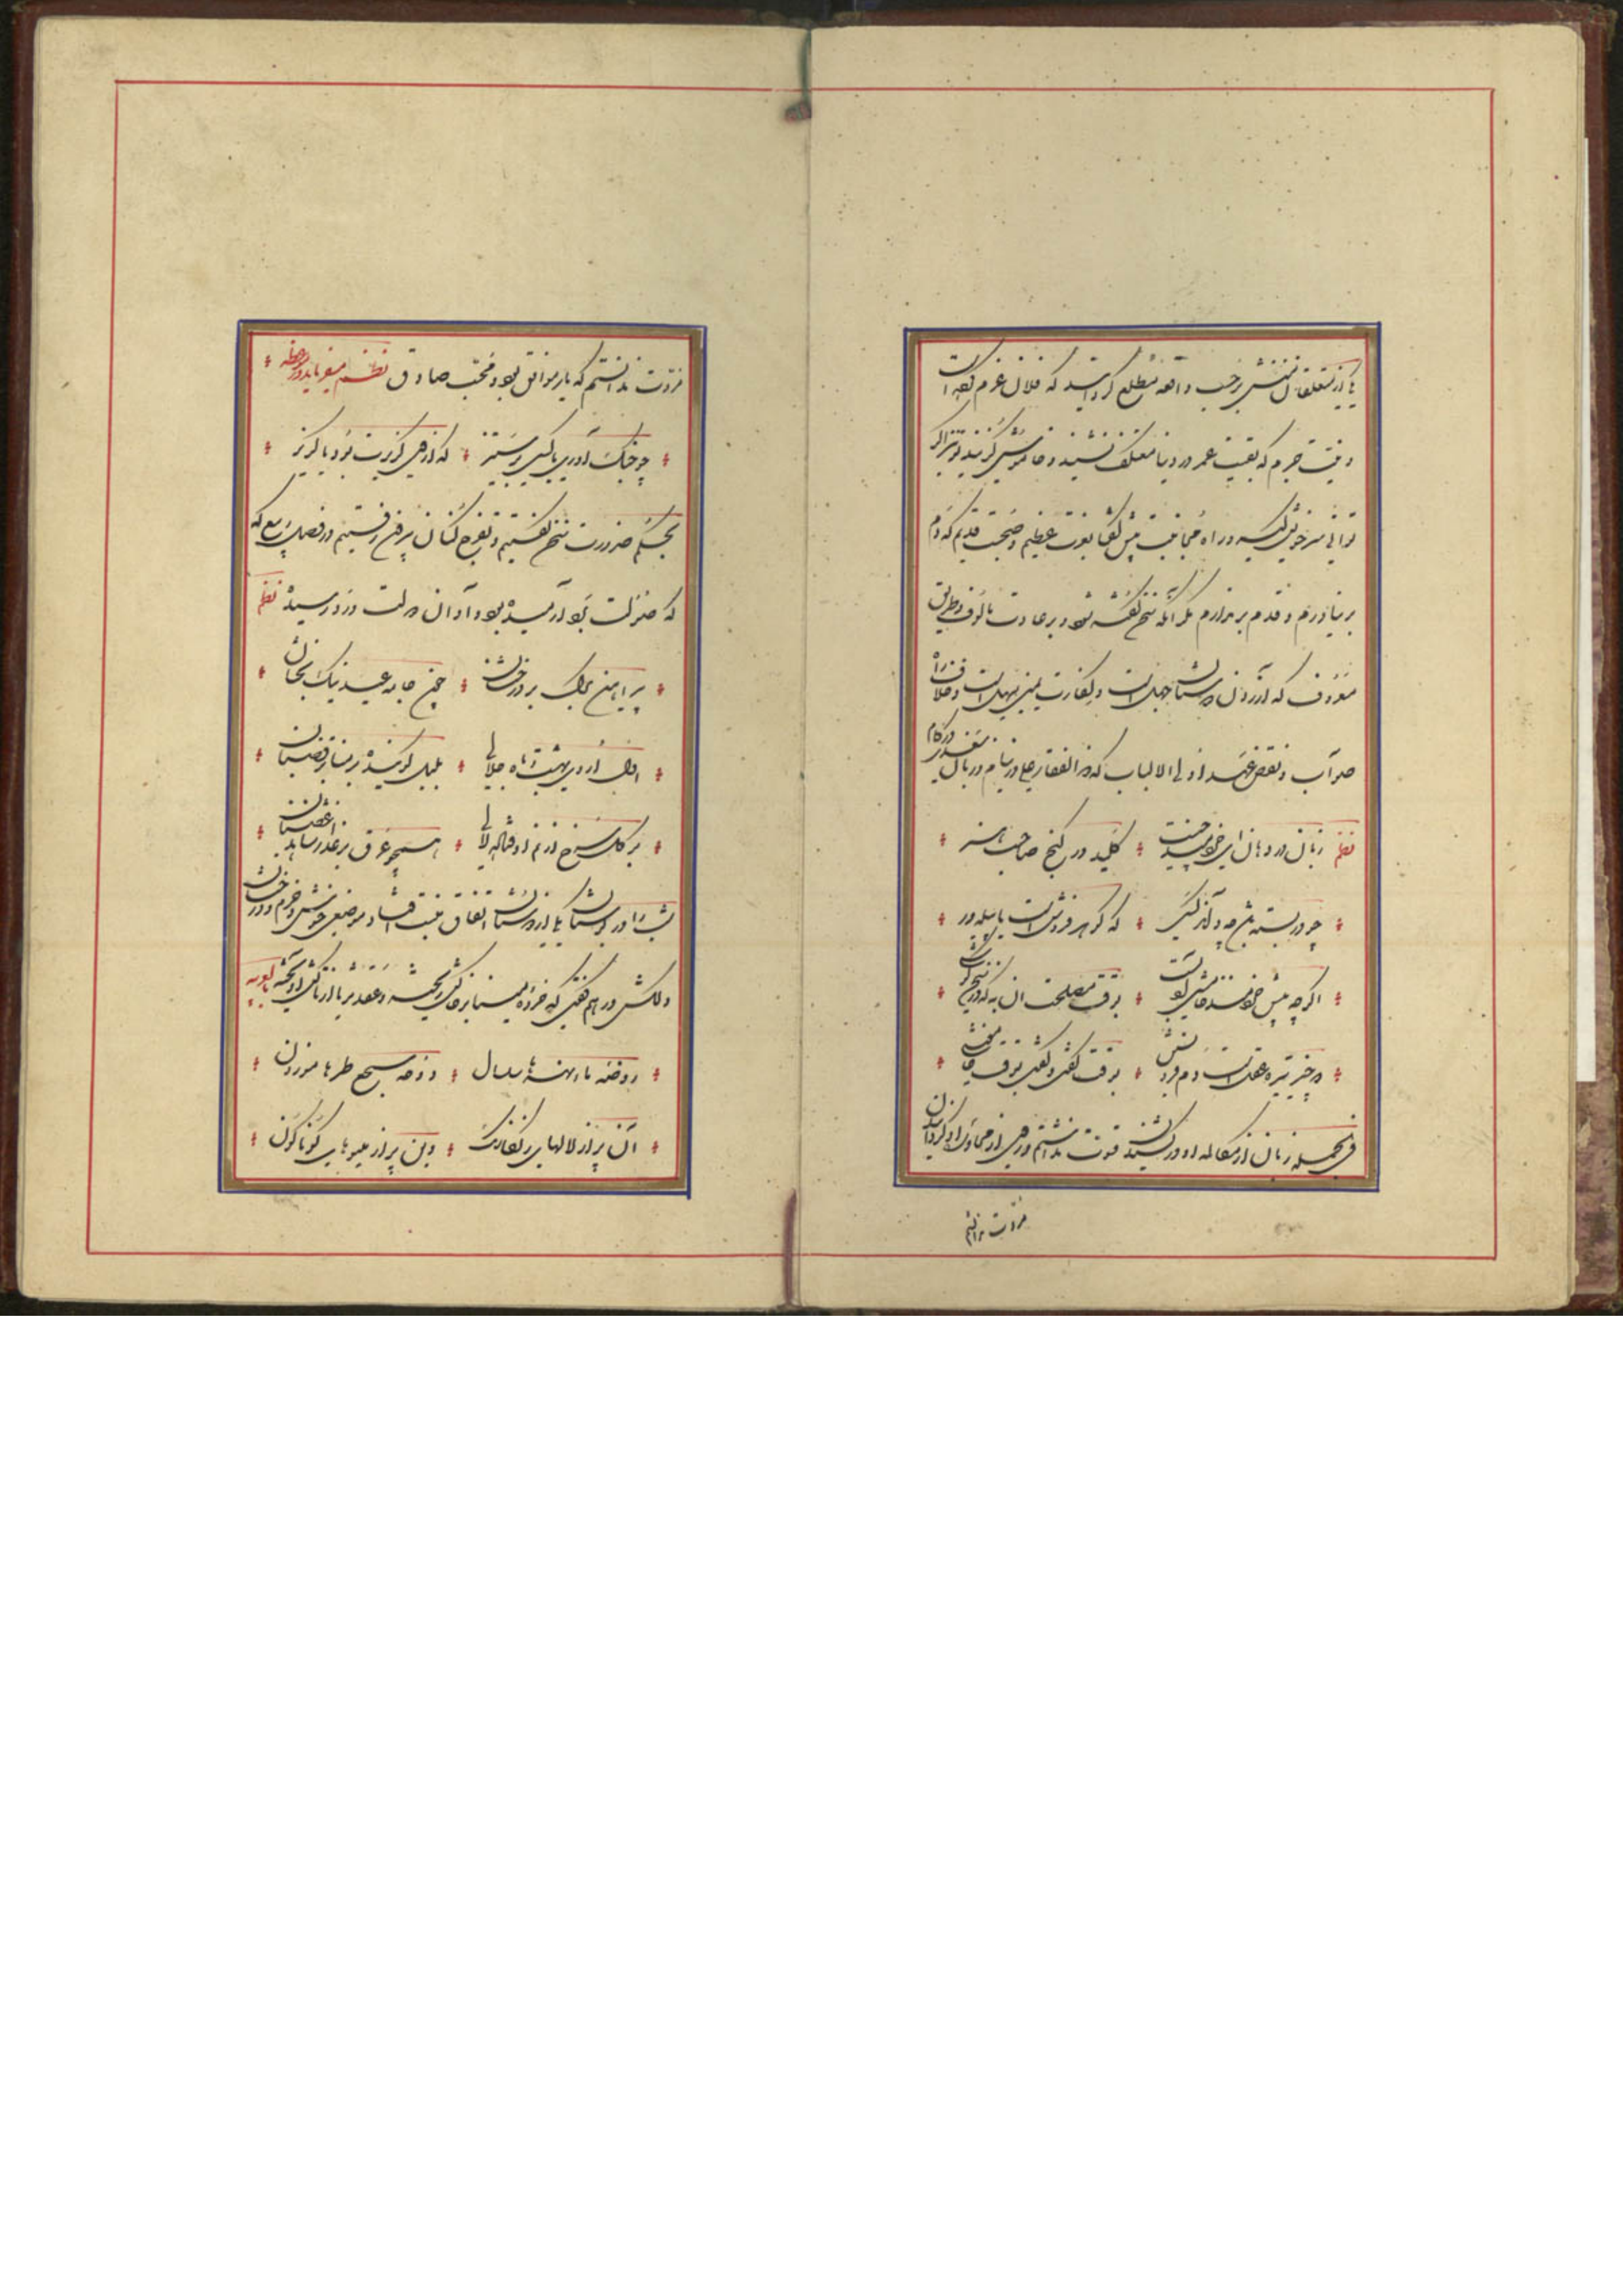 یکی از متعلقان منش بر حسب واقعه مطلع گردانید که فلان عزم کرده است
و نیت جزم که بقیت عمر در دنیا معتکف نشیند و خاموشی گزیند تو نیز اگر
توانی سر خویش گیر و راه مجانبت پیش گفتا بعزت عظیم و صحبت قدیم که دم
بر نیاورم و قدم بر ندارم مگر آنکه سخن گفته شود بر عادت مألوف و طریق
معروف که آزردن دوستان جهل است و کفارت یمین سهل است و خلاف راه
صواب و نقض عهد اولی الالباب که ذوالفقار علی در نیام و زبان سعدی در کام
نظم زبان در دهان ای خردمند چیست کلید در گنج صاحب هنر
چو در بسته باشد چه داند کسی که گوهر فروش است یا پیله ور
اگر چه پیش خردمند خامشی ادبست بوقت مصلحت آن به که در سخن کوشی
دو چیز تیره عقلست دم فرو بستن بوقت گفتن و گفتن بوقت خاموشی
فی الجمله زبان از مکالمه او در کشیدن قوت نداشتم و روی از محاوره او گردانیدن
مروت ندانستم
مروت ندانستم که یار موافق بود و محب صادق نظم
چو جنگ آوری با کسی بر ستیز که از وی گزیرت بود یا گریز
بحکم ضرورت سخن گفتیم و تفرج کنان بیرون رفتیم در فصل ربیع که
که صولت برد آرمیده بود و آوان دولت ورد رسیده نظم
پیراهن برگ بر درختان چون جامه عید نیک بختان
اول اردیبهشت ماه جلالی بلبل گوینده بر منابر قضبان
بر گل سرخ از نم اوفتاده لالی همچو عرق بر عذار شاهد غضبان
شب را در بوستان با یکی از دوستان اتفاق مبیت افتاد موضعی خوش و خرم و درختان
دلکش در هم گفتی که خرده مینا بر خاکش ریخته و عقد ثریا از تاکش آویخته
روضه ماء نهرها سلسال دوحه سجع طیرها موزون
آن پر از لالهای رنگارنگ وین پر از میوهای گوناگون